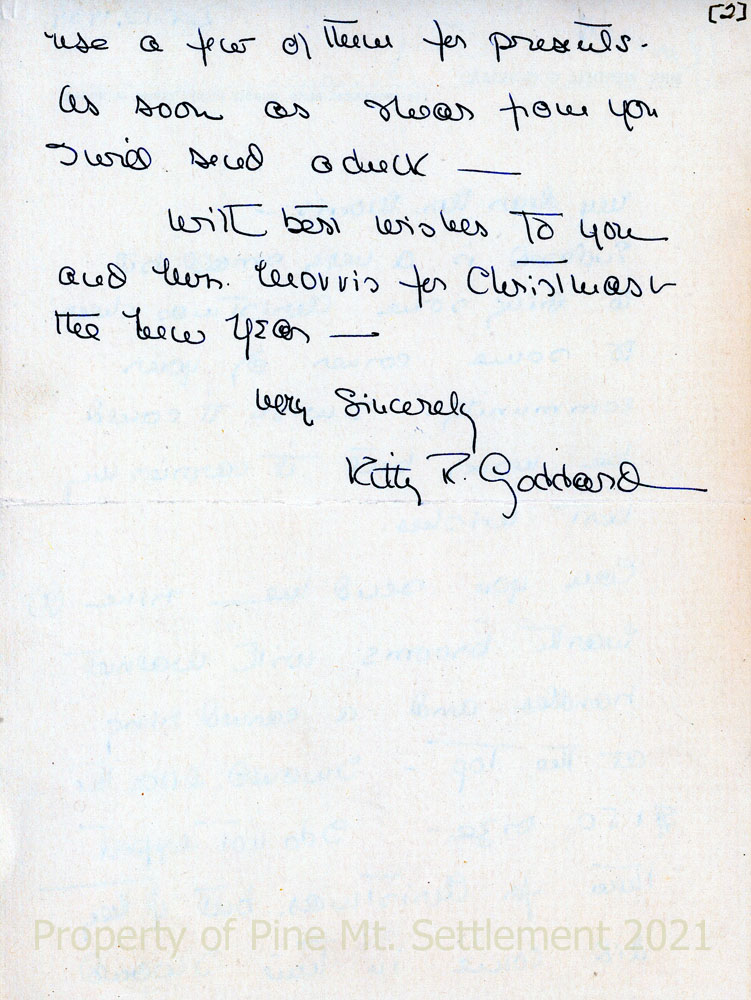 [2]
use a few of them for presents.
As soon as I hear from you
I will send a check —
With best wishes to you
and Mrs. Morris for Christmas &
the New Year —
Very Sincerely
Kitty R. Goddard
Property of Pine Mt. Settlement 2021